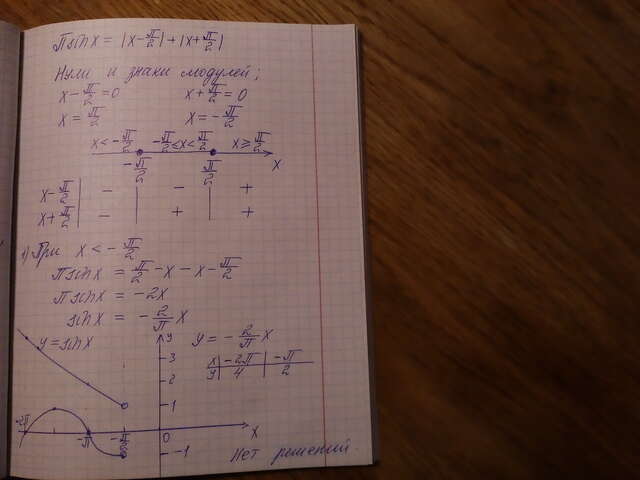 πsinx = |x-π/2| + |x+π/2|
Нули и знаки модулей;
x-π/2=0 x+π/2=0
x=π/2 x=-π/2
x<-π/2 -π/2≤x<π/2 x≥π/2
-π/2 π/2 x
x-π/2 | - | - | +
x+π/2 | - | + | +
1) При x < -π/2
πsinx = π/2 -x -x -π/2
πsinx = -2x
sinx = -2/π x
y=sinx y y=-2/π x
3 x | -2π | -π/2
2 y | 4 | 2
1
-2π -π -π/2 0 x
-1 Нет решений.